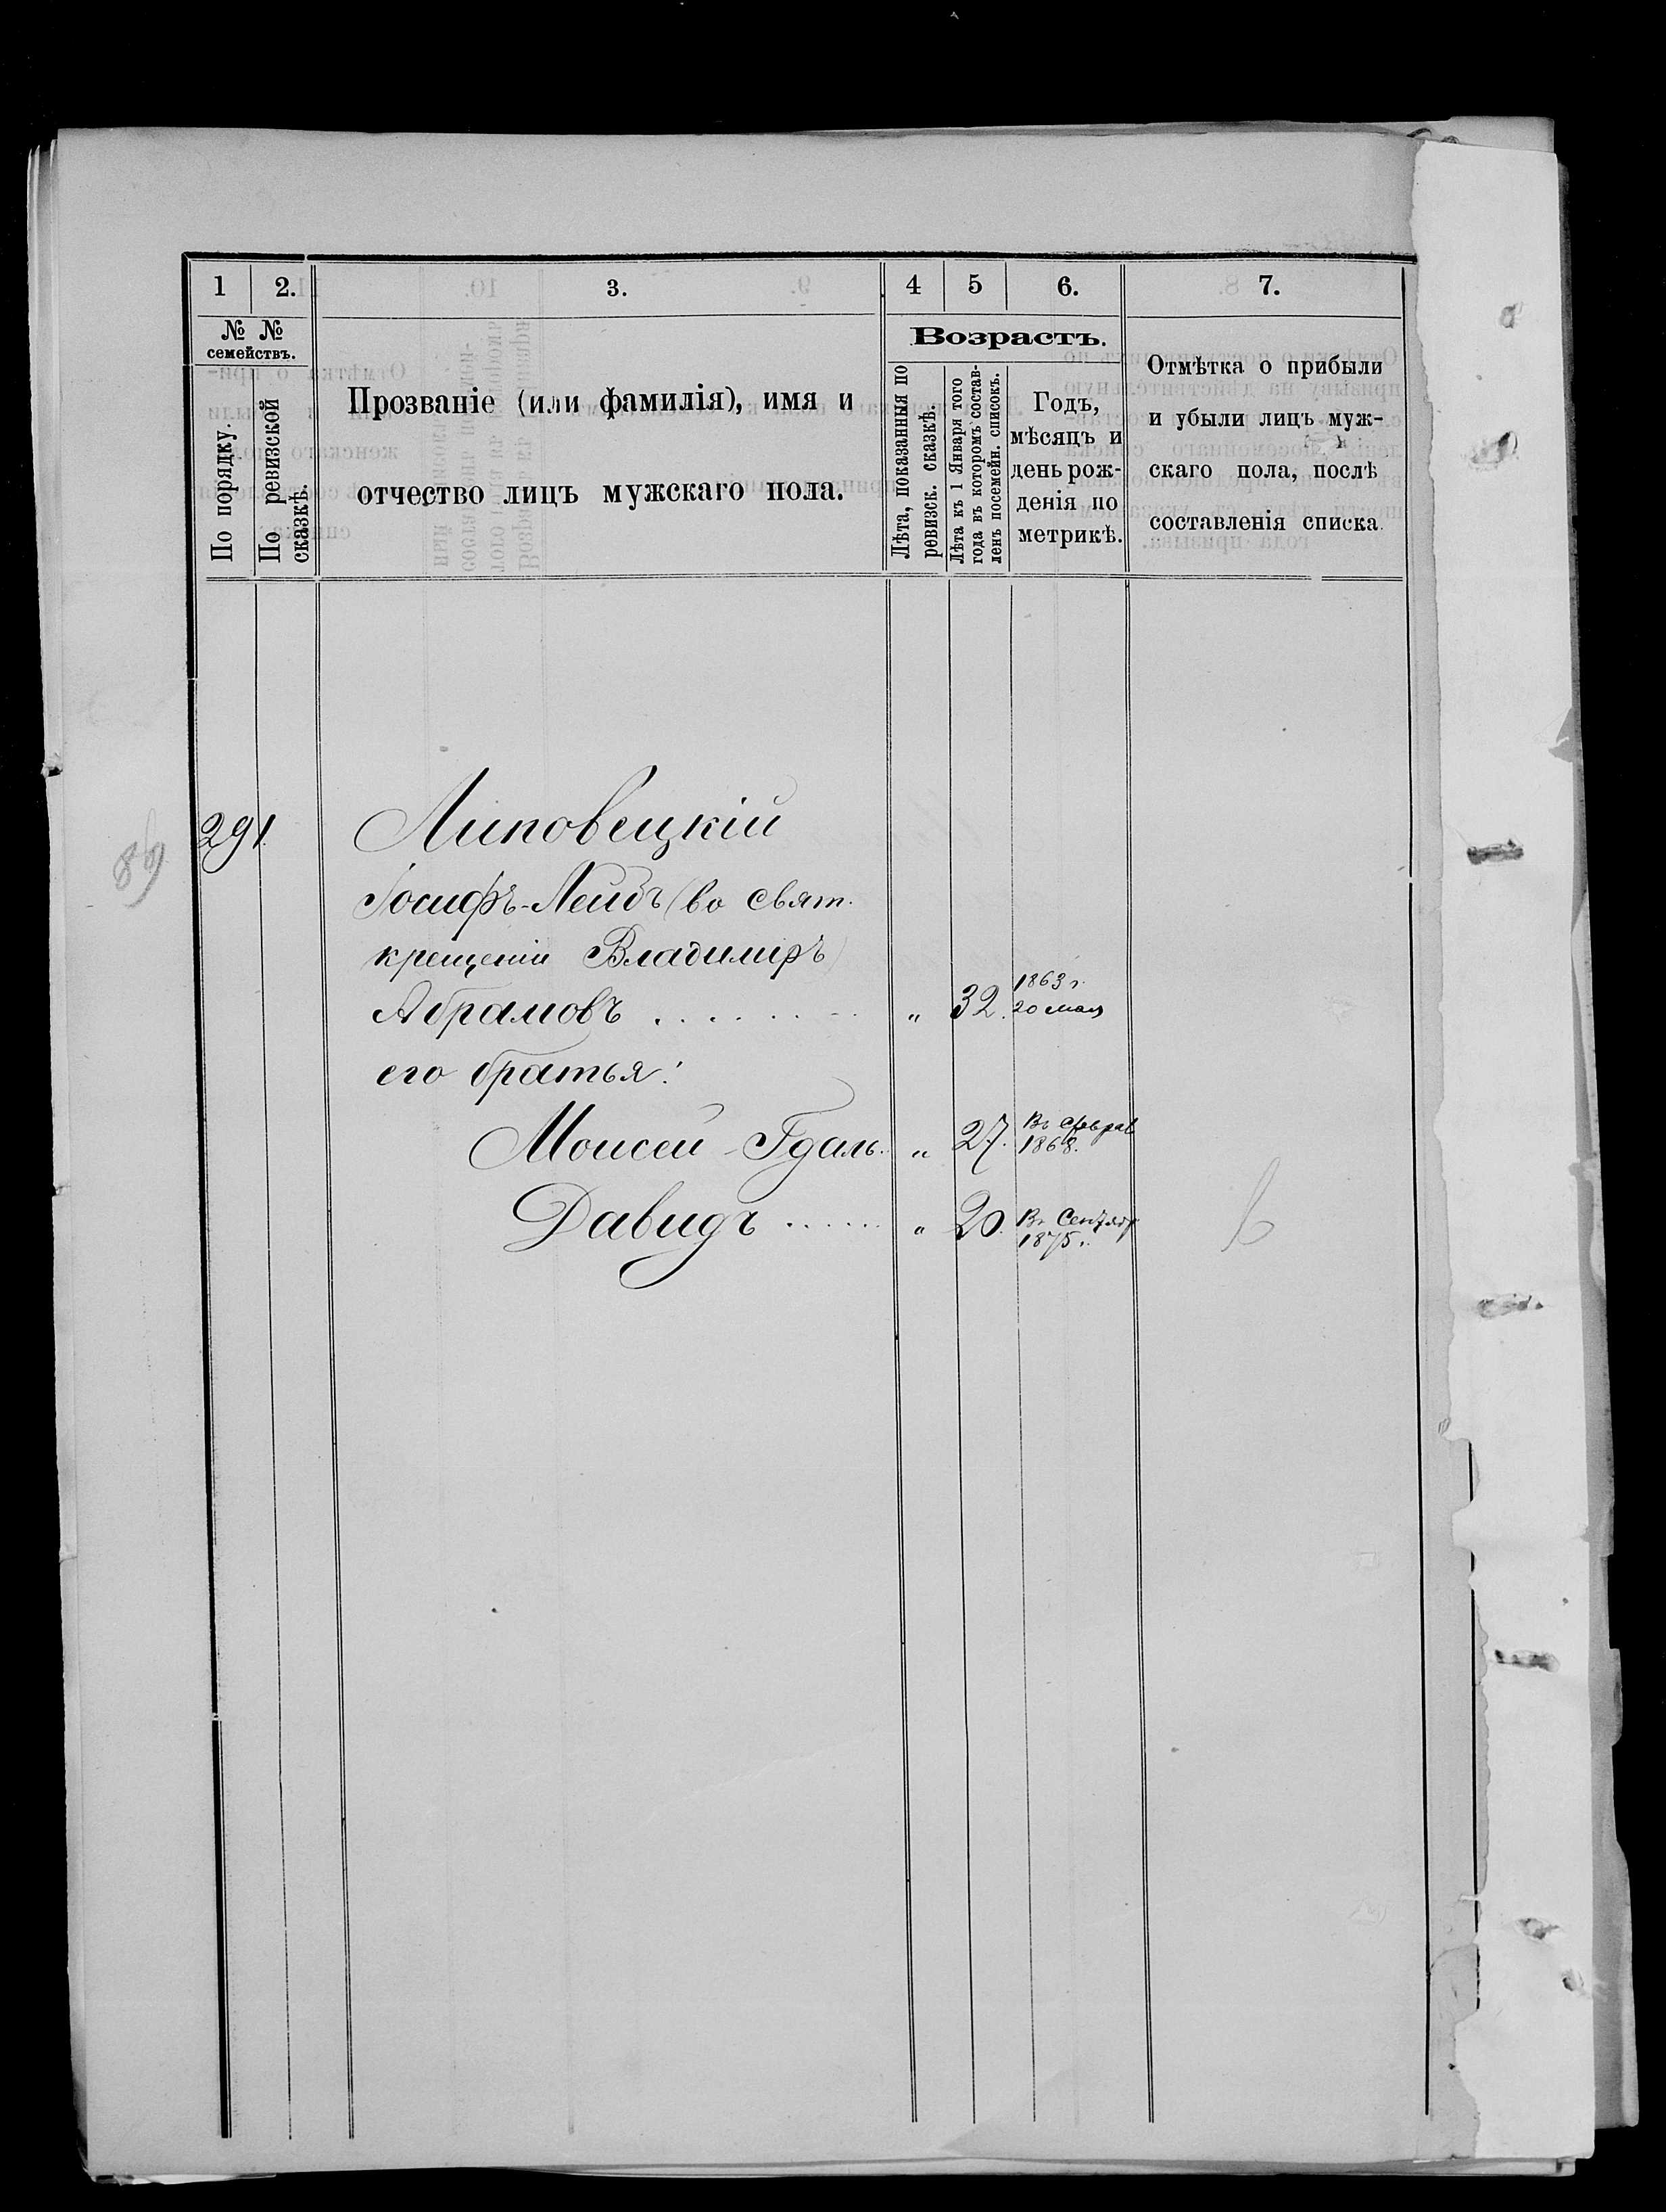 1 2. 3. 4 5 6. 7.
№ №
семействъ.
По порядку.
По ревизской
сказкѣ.
Прозваніе (или фамилія), имя и
отчество лицъ мужскаго пола.
Возрастъ.
Лѣта, показанныя по
ревизск. сказкѣ.
Лѣта къ 1 Января того
года въ которомъ состав-
ленъ посемейн. списокъ.
Годъ,
мѣсяцъ и
день рож-
денія по
метрикѣ.
Отмѣтка о прибыли
и убыли лицъ муж-
скаго пола, послѣ
составленія списка.
291. Липовецкій
Іосифъ-Лейбъ (во свят.
крещеніи Владиміръ)
Абрамовъ . . . . . . . „ 32. 1863 г.
20 мая
его братья:
Моисей-Гдаль. „ 27. Въ Феврал
1868.
Давидъ . . . . . . „ 20. Въ Сентябр
1875 г.